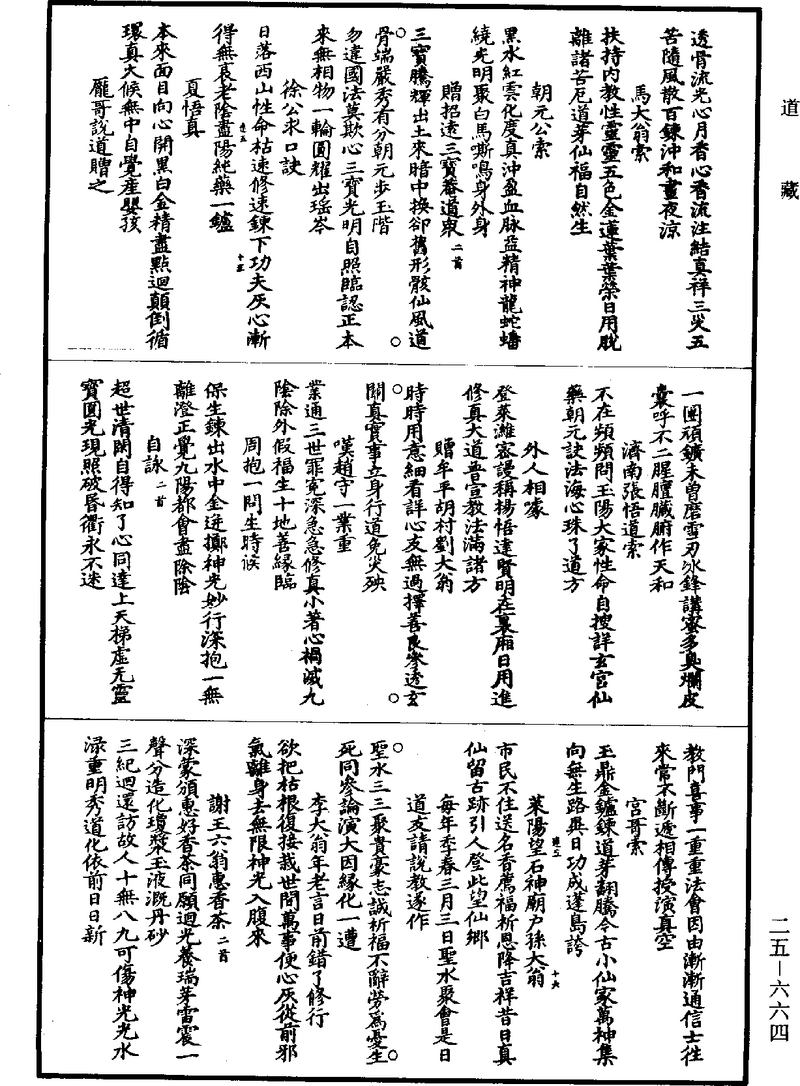 道藏
透骨流光心月香心香流注結真祥三災五
苦隨風散百鍊沖和晝夜涼
馬大翁索
扶持内教性靈靈五色金蓮葉葉榮日用脫
離諸苦厄道芽仙福自然生
朝元公索
黑水紅雲化度真沖盈血脉益精神龍蛇蟠
繞光明聚白馬嘶鳴身外身
贈招遠三寶菴道衆二首
三寶騰輝出土來暗中換卻舊形骸仙風道
骨端嚴秀有分朝元步玉階
○ ○
勿違國法莫欺心三寶光明自照臨認正本
來無相物一輪圓耀出瑶岑
徐公求口訣
日落西山性命枯速修速鍊下功夫灰心漸
得無衰老陰盡陽純藥一鑪
夏悟真
本來面目向心開黑白金精盡點迴顛倒循
環真大候無中自覺産嬰孩
龐哥說道贈之
一團頑鑛未曾磨雪刃冰鋒講蜜多臭爛皮
囊呼不二腥膻臟腑作天和
濟南張悟道索
不在頻頻問玉陽大家性命自搜詳玄宮仙
藥朝元訣法海心珠了道方
外人相嚎
登萊濰密謾稱楊悟達賢明在裏廂日用進
修真大道普宣教法滿諸方
贈牟平胡村劉大翁
時時用意細看詳心友無過擇善良參透玄
關真實事立身行道免災殃
○ ○
嘆趙守一業重
業通三世罪寃深急急修真小著心禍滅九
陰除外假福生十地善緣臨
周抱一問生時候
保生鍊出水中金迸擲神光妙行深抱一無
離澄正覺九陽都會盡除陰
自詠二首
超世清閑自得知了心同達上天梯虚无靈
寶圓光現照破昏衢永不迷
教門真事一重重法會因由漸漸通信士往
來常不斷遞相傳授演真空
宮哥索
玉鼎金鑪鍊道芽翻騰今古小仙家萬神集
向無生路異日功成蓬島誇
萊陽望石神廟户孫大翁
市民不住送名香薦福祈恩降吉祥昔日真
仙留古跡引人登此望仙鄉
每年季春三月三日聖水聚會是日
道友請說教遂作
聖水三三聚貴豪志誠祈福不辭勞爲憂生
死同參論演大因緣化一遭
○ ○
李大翁年老言日前錯了修行
欲把枯根復接栽世間萬事便心灰從前邪
氣離身去無限神光入腹來
謝王六翁惠香茶二首
深蒙頒惠好香茶同願迴光養瑞芽雷震一
聲分造化瓊漿玉液溉丹砂
三紀迴還訪故人十無八九可傷神光光水
渌重明秀道化依前日日新
二五—六六四